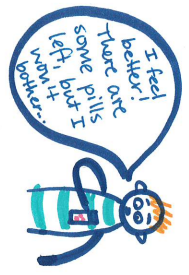 I feel
better!
There are
some pills
left, but I
won't
bother...